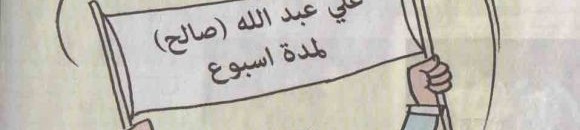 علي عبد الله (صالح)
لمدة اسبوع